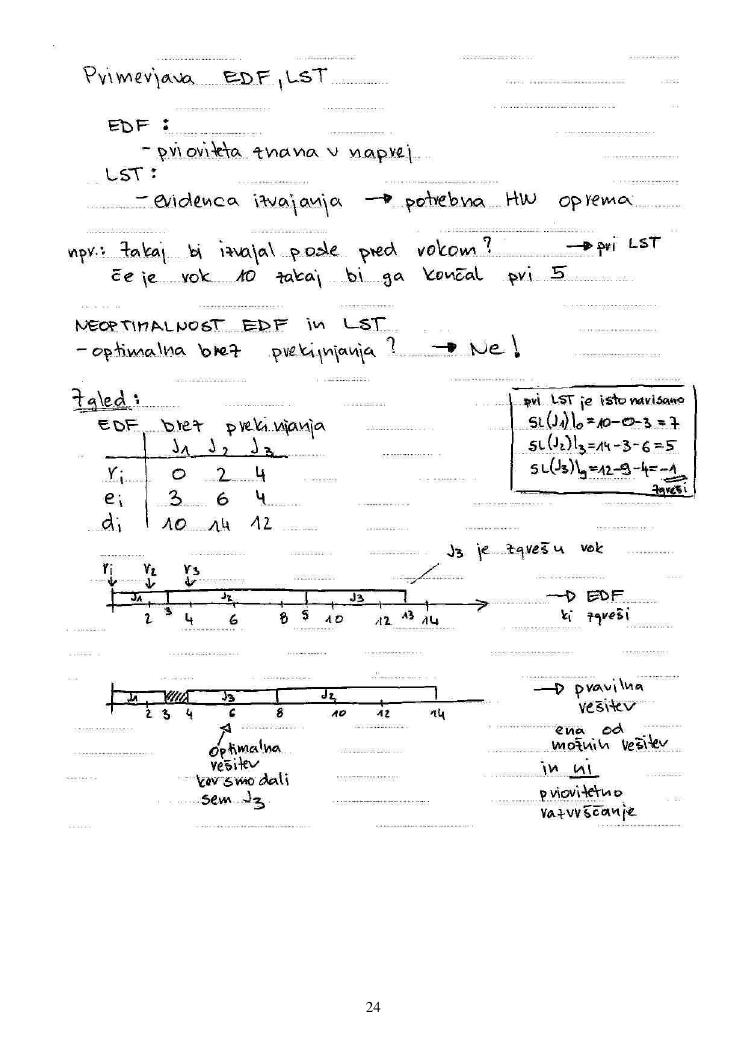 Primerjava EDF, LST
EDF :
- prioriteta znana v naprej
LST :
- evidenca izvajanja → potrebna HW oprema
npr.: zakaj bi izvajal posle pred rokom? → pri LST
če je rok 10 zakaj bi ga končal pri 5
NEOPTIMALNOST EDF in LST
- optimalna brez prekinjanja? → Ne!
Zgled :
EDF brez prekinjanja
J1 J2 J3
ri 0 2 4
ei 3 6 4
di 10 14 12
pri LST je isto narisano
SL(J1)|0=10-0-3=7
SL(J2)|3=14-3-6=5
SL(J3)|9=12-9-4=-1
zgreši
J3 je zgrešu rok
ri r2 r3
J1 J2 J3
2 3 4 6 8 9 10 12 13 14
→ EDF
ki zgreši
J1 J3 J2
2 3 4 6 8 10 12 14
→ pravilna
rešitev
ena od
možnih rešitev
in ni
prioritetno
razvrščanje
optimalna
rešitev
ker smo dali
sem J3
24